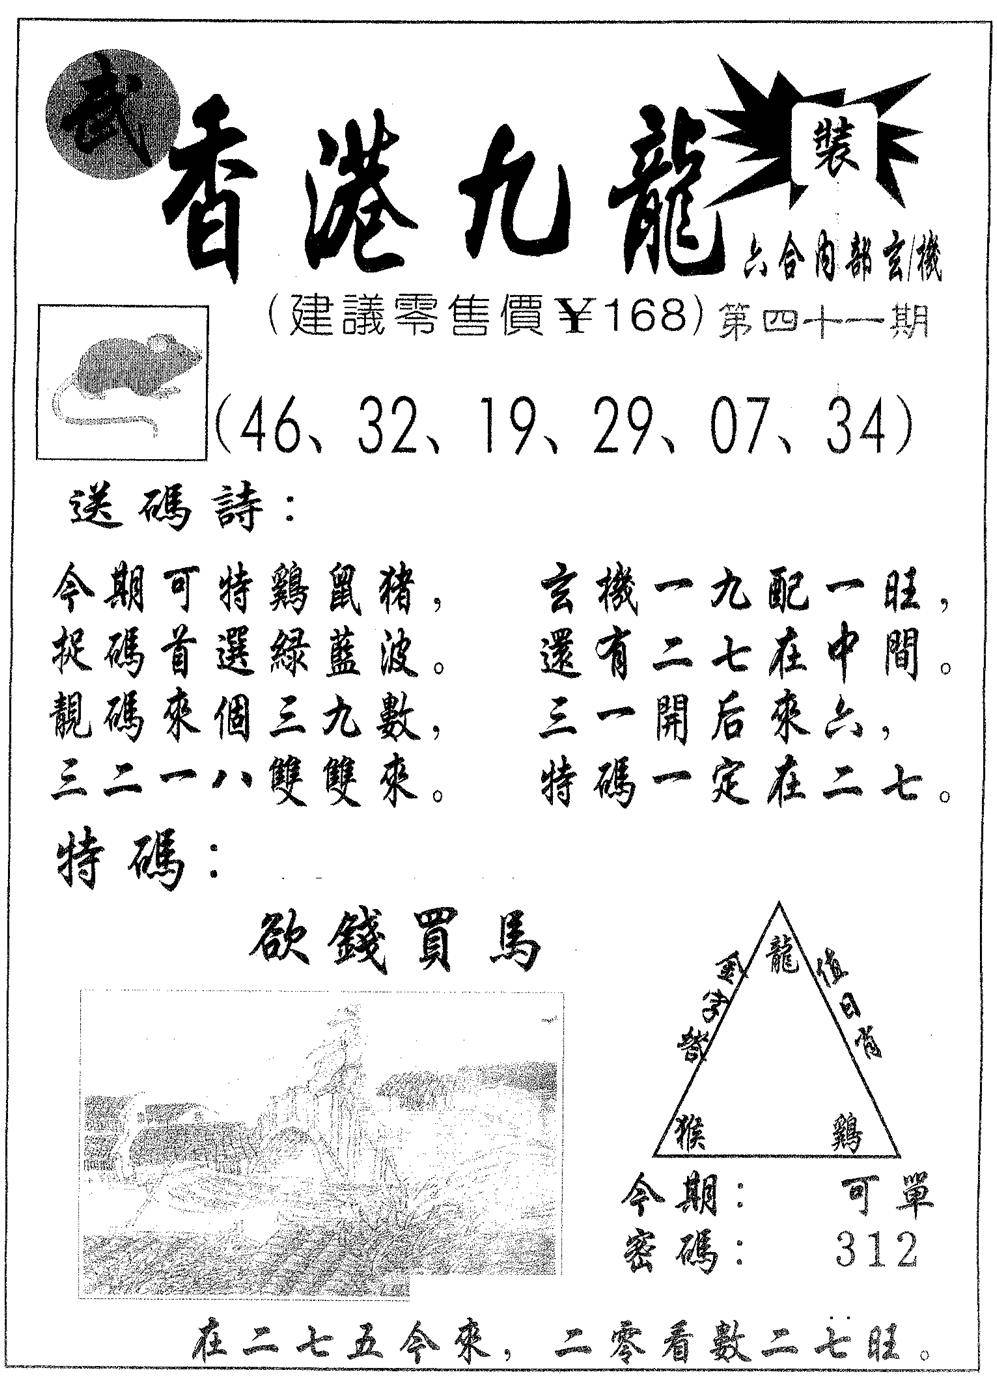 武
香港九龍
裝
六合内部玄機
(建議零售價￥168)第四十一期
(46、32、19、29、07、34)
送碼詩：
今期可特鷄鼠猪，
捉碼首選緑藍波。
靚碼來個三九數，
三二一八雙雙來。
玄機一九配一旺，
還有二七在中間。
三一開后來六，
特碼一定在二七。
特碼：
欲錢買馬
龍
金字塔
值日肖
猴
鷄
今期：可單
密碼：312
在二七五今來，二零看數二七旺。